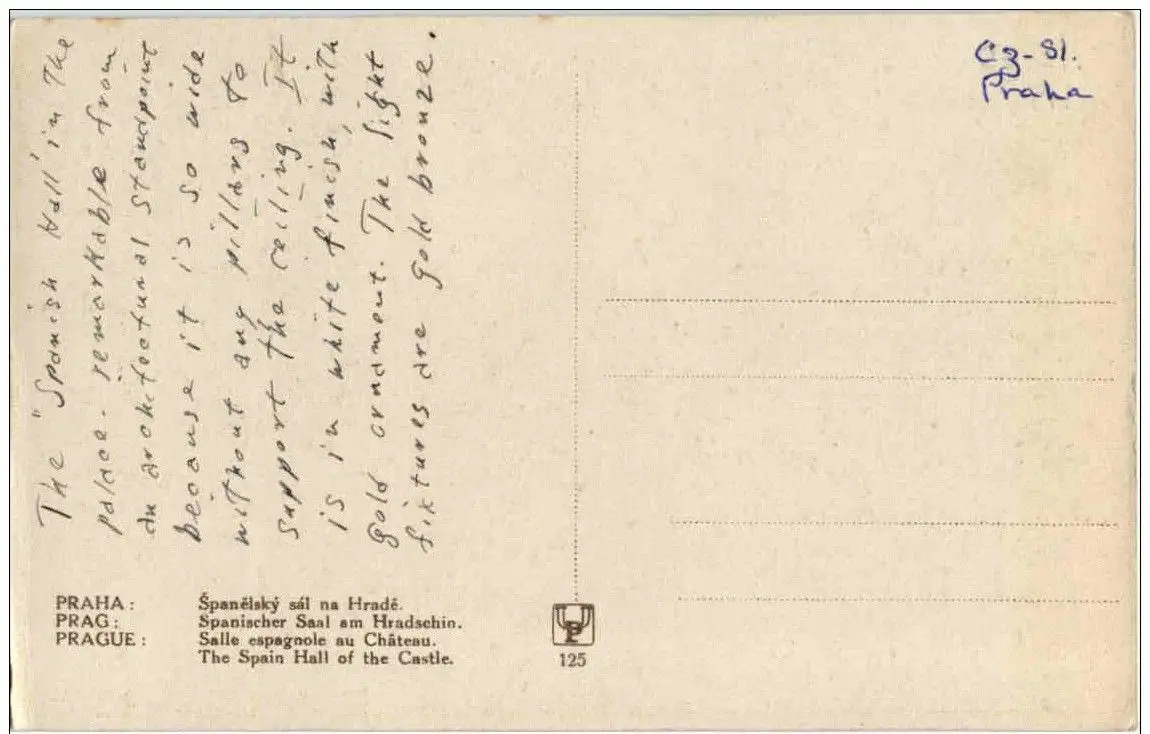 The "Spanish Hall in the
palace. remarkable from
an architectural standpoint
because it is so wide
without any pillars to
support the ceiling. It
is in white finish, with
gold ornament. The light
fixtures are gold bronze.
Cz-Sl.
Praha
PRAHA: Španělský sál na Hradě.
PRAG: Spanischer Saal am Hradschin.
PRAGUE: Salle espagnole au Château.
The Spain Hall of the Castle.
P
125